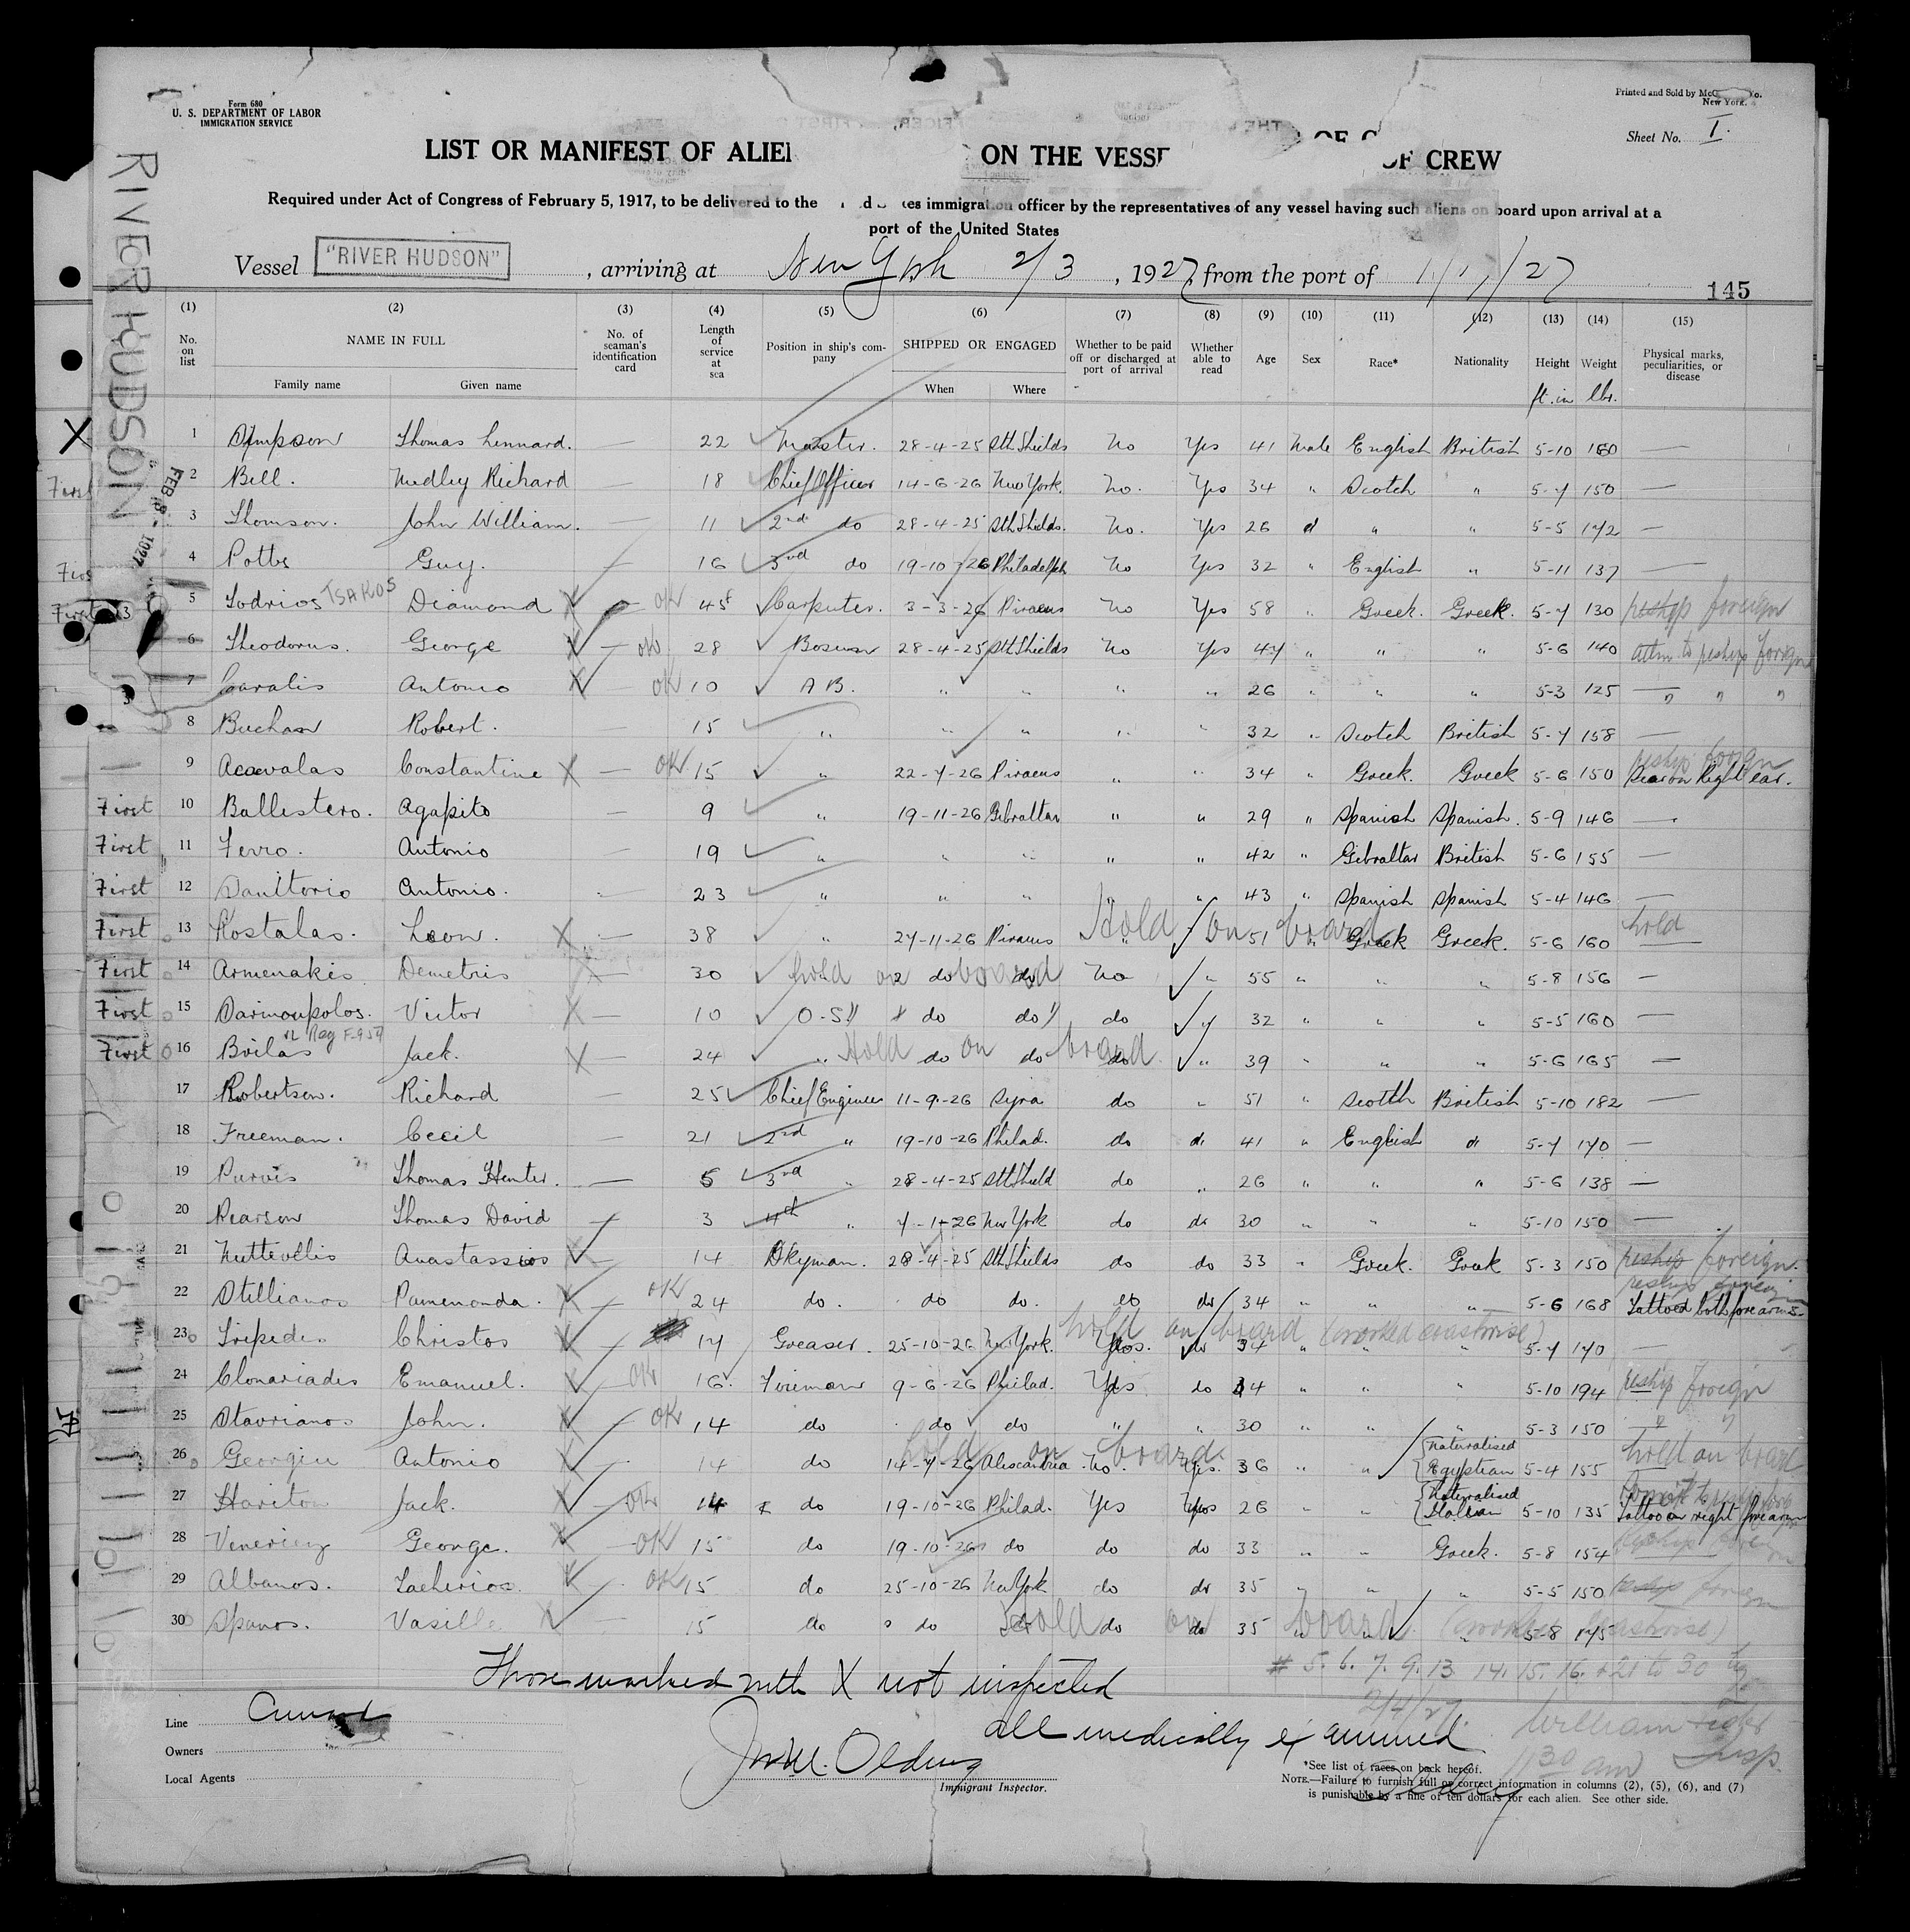 Form 680
U. S. DEPARTMENT OF LABOR
IMMIGRATION SERVICE
Printed and Sold by
New York.
Sheet No. I.
LIST OR MANIFEST OF ALIEN ON THE VESSEL OF CREW
Required under Act of Congress of February 5, 1917, to be delivered to the immigration officer by the representatives of any vessel having such aliens on board upon arrival at a
port of the United States
Vessel "RIVER HUDSON", arriving at New York 2/3, 1927, from the port of 1/1/27
145
RIVER HUDSON
(1) (2) (3) (4) (5) (6) (7) (8) (9) (10) (11) (12) (13) (14) (15)
No. on list NAME IN FULL No. of seaman's identification card Length of service at sea Position in ship's company SHIPPED OR ENGAGED Whether to be paid off or discharged at port of arrival Whether able to read Age Sex Race* Nationality Height Weight Physical marks, peculiarities, or disease
Family name Given name When Where ft. in lbs.
1 Simpson Thomas Lennard. — 22 Master. 28-4-25 Sth Shields No Yes 41 Male English British 5-10 160 —
First 2 Bell. Medley Richard — 18 Chief Officer 14-6-26 New York. No. Yes 34 " Scotch " 5-7 150 —
3 Thomson. John William. — 11 2nd do 28-4-25 Sth Shields. No. Yes 26 d " " 5-5 172 —
4 Potts Guy. 16 3rd do 19-10-26 Philadelph No Yes 32 " English " 5-11 137 —
First 5 Todrios TSAKOS Diamond X OK 45 Carpenter. 3-3-26 Piraeus No Yes 58 " Greek. Greek. 5-7 130 reship foreign
6 Theodorus. George X — OK 28 Bosun 28-4-25 Sth Shields No Yes 47 " " " 5-6 140 to reship foreign
7 Caralis Antonio X — OK 10 A B. " " " " 26 " " " 5-3 125 — " " "
8 Buchan Robert. — 15 " " " " " 32 " Scotch British 5-7 158 —
9 Constantine X — OK 15 " 22-7-26 Piraeus " " 34 " Greek. Greek 5-6 150 reship foreign Scar on Right ear.
First 10 Ballestero. Agapito — 9 " 19-11-26 Gibraltar " " 29 " Spanish Spanish. 5-9 146 —
First 11 Ferro. Antonio — 19 " " " " " 42 " Gibraltar British 5-6 155 —
First 12 Antonio. — 23 " " " " " 43 " Spanish Spanish 5-4 146 —
First 13 Kostalas. Leon. X — 38 " 27-11-26 Piraeus Hold on board " 51 " Greek Greek. 5-6 160 hold
First 14 Armenakis Demetris X — 30 hold on board do do No " 55 " " " 5-8 156 —
First 15 Victor X — 10 O-S do do do " 32 " " " 5-5 160 —
First 16 Boilas Jack. X 24 " Hold on board do do do " 39 " " " 5-6 165 —
17 Robertson. Richard — 25 Chief Engineer 11-9-26 Syra do " 51 " Scotch British 5-10 182 —
18 Freeman. Cecil — 21 2nd " 19-10-26 Philad. do do 41 " English do 5-7 170 —
19 Purvis Thomas Hunter. — 5 3rd " 28-4-25 Sth Shield do " 26 " " " 5-6 138 —
20 Pearson Thomas David — 3 4th " 7-1-26 New York do do 30 " " " 5-10 150 —
21 Anastassios X — 14 Dkyman. 28-4-25 Sth Shields do do 33 " Greek. Greek 5-3 150 reship foreign.
22 Stillianos Pamenonda. X — OK 24 do. do do. do do 34 " " " 5-6 168 reship foreign Tattooed both forearms.
23 Tripedis Christos X 17 Greaser. 25-10-26 New York. hold on board (worked coastwise) Yes. do 34 " " " 5-7 170 —
24 Clonariades Emanuel. X — OK 16. Fireman 9-6-26 Philad. Yes do 34 " " " 5-10 194 reship foreign
25 Stavrianos John. X — OK 14 do do do " " 30 " " " 5-3 150 " "
26 Georgiu Antonio X 14 do 14-7-26 Alexandria hold on board No. Yes. 36 " " naturalised Egyptian 5-4 155 hold on board
27 Hariton Jack. X — OK 14 do 19-10-26 Philad. Yes Yes 26 " " Naturalised Italian 5-10 135 Tattoo on right forearm
28 George. X — OK 15 do 19-10-26 do do do 33 " " Greek. 5-8 154
29 Albanos. Zacherios X OK 15 do 25-10-26 New York do do 35 " " " 5-5 150 reship foreign
30 Spanos. X — 15 do do do Hold on board do do 35 " " " 5-8 175 (worked coastwise)
Those marked with X not inspected
# 5. 6. 7. 9. 13 14. 15. 16. + 21 to 30
2/4/27.
William
Insp.
11 30 am
all medically examined
Line Cunard
Owners
Local Agents
Immigrant Inspector.
*See list of races on back hereof.
NOTE.—Failure to furnish full or correct information in columns (2), (5), (6), and (7)
is punishable by a fine of ten dollars for each alien. See other side.